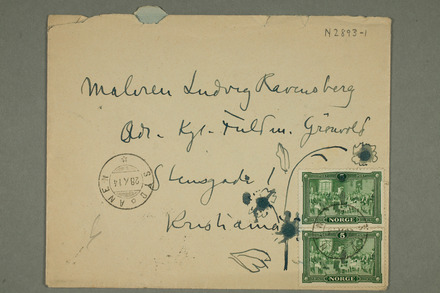 N 2893-1
Maleren Ludvig Ravensberg
Adr. Kgl. Fuldm. Grönvold
Stensgade 1
Kristiania
SYDBANEN
28 X 14
NORGE
5
NORGE